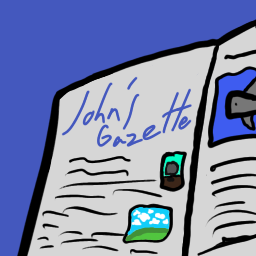 John's
Gazette